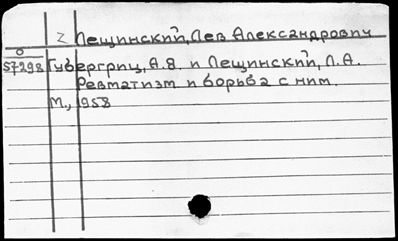 2 Лещинский, Лев Александрович
О
57298 Губергриц, А.Я. и Лещинский, Л.А.
Ревматизм и борьба с ним.
М., 1958